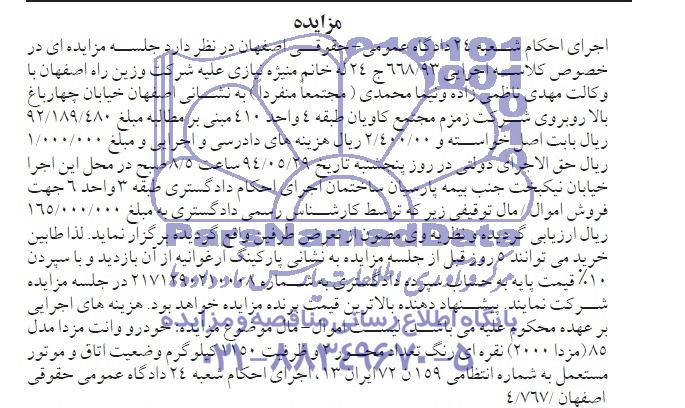 مزایده
اجرای احکام شعبه ۲۴ دادگاه عمومی - حقوقی اصفهان در نظر دارد جلسه مزایده ای در
خصوص کلاسه اجرایی ۶۶۸/۹۳ ج ۲۴ له خانم منیژه نیازی علیه شرکت وزین راه اصفهان با
وکالت مهدی ناظمی زاده و تنها محمدی ( مجتمعا منفردا) به نشانی اصفهان خیابان چهارباغ
بالا روبروی شرکت زمزم مجتمع کاویان طبقه ۴ واحد ۴۱۰ مبنی بر مطالبه مبلغ ۹۲/۱۸۹/۴۸۰
ریال بابت اصل خواسته و ۲/۴۰۰/۰۰ ریال هزینه های دادرسی و اجرایی و مبلغ ۱/۰۰۰/۰۰۰
ریال حق الاجرای دولتی در روز پنجشنبه تاریخ ۹۴/۰۵/۲۹ ساعت ۸/۵ صبح در محل این اجرا
خیابان نیکبخت جنب بیمه پارسیان ساختمان اجرای احکام دادگستری طبقه ۳ واحد ۶ جهت
فروش اموال / مال توقیفی زیر که توسط کارشناس رسمی دادگستری به مبلغ ۱۶۵/۰۰۰/۰۰۰
ریال ارزیابی گردیده و نظریه وی مصون از تعرض طرفین واقع گردیده برگزار نماید. لذا طالبین
خرید می توانند ۵ روز قبل از جلسه مزایده به نشانی پارکینگ ارغوانیه از آن بازدید و با سپردن
۱۰٪ قیمت پایه به حساب سپرده دادگستری به شماره ۲۱۷۱۲۹۰۲۱۰۰۰۸ در جلسه مزایده
شرکت نمایند. پیشنهاد دهنده بالاترین قیمت برنده مزایده خواهد بود. هزینه های اجرایی
بر عهده محکوم علیه می باشد. لیست اموال - مال موضوع مزایده: خودرو وانت مزدا مدل
۸۵ (مزدا ۲۰۰۰) نقره ای رنگ تعداد محور ۲ و ظرفیت ۱۱۵۰ کیلوگرم وضعیت اتاق و موتور
مستعمل به شماره انتظامی ۱۵۹ ن ۷۲ ایران ۱۳، اجرای احکام شعبه ۲۴ دادگاه عمومی حقوقی
اصفهان /۴/۷۶۷
ParsNamadData
پایگاه اطلاع رسانی مناقصه و مزایده
۰۲۱-۸۸۳۴۹۶۷۰-۵